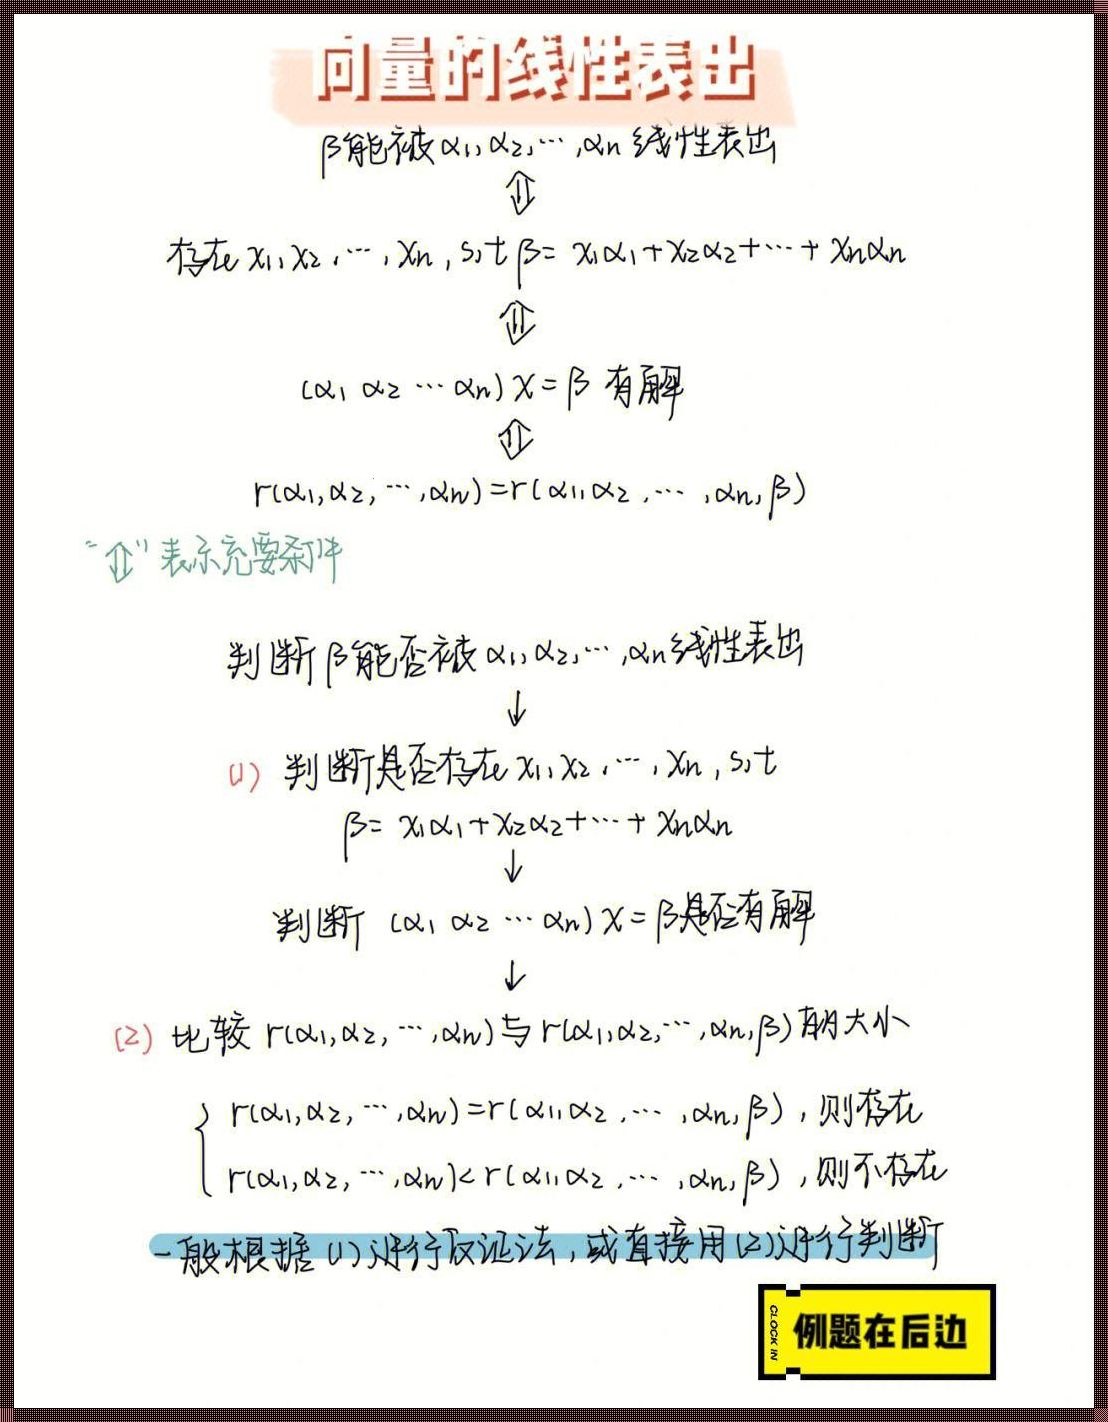 向量的线性表出
β能被α₁,α₂,…,αn线性表出
⇕
存在x₁,x₂,…,xn,s,t β=x₁α₁+x₂α₂+…+xnαn
⇕
(α₁ α₂ … αn)x=β 有解
⇕
r(α₁,α₂,…,αn)=r(α₁,α₂,…,αn,β)
“⇕”表示充要条件
判断β能否被α₁,α₂,…,αn线性表出
↓
(1) 判断是否存在x₁,x₂,…,xn,s,t
β=x₁α₁+x₂α₂+…+xnαn
↓
判断 (α₁ α₂ … αn)x=β是否有解
↓
(2) 比较 r(α₁,α₂,…,αn)与r(α₁,α₂,…,αn,β)的大小
r(α₁,α₂,…,αn)=r(α₁,α₂,…,αn,β),则存在
r(α₁,α₂,…,αn)<r(α₁,α₂,…,αn,β),则不存在
一般根据(1)进行反证法,或直接用(2)进行判断
CLOCK IN
例题在后边